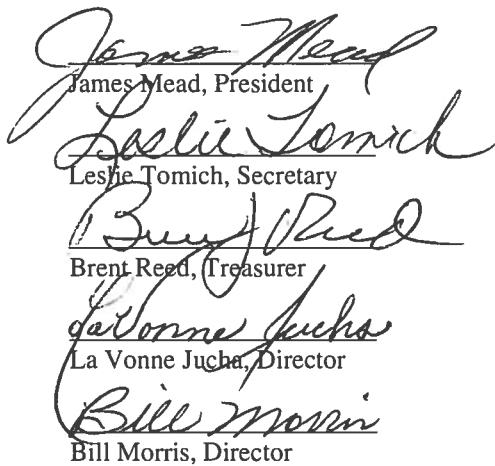 James Mead
James Mead, President
Leslie Tomich
Leslie Tomich, Secretary
Brent J Reed
Brent Reed, Treasurer
La Vonne Jucha
La Vonne Jucha, Director
Bill Morris
Bill Morris, Director